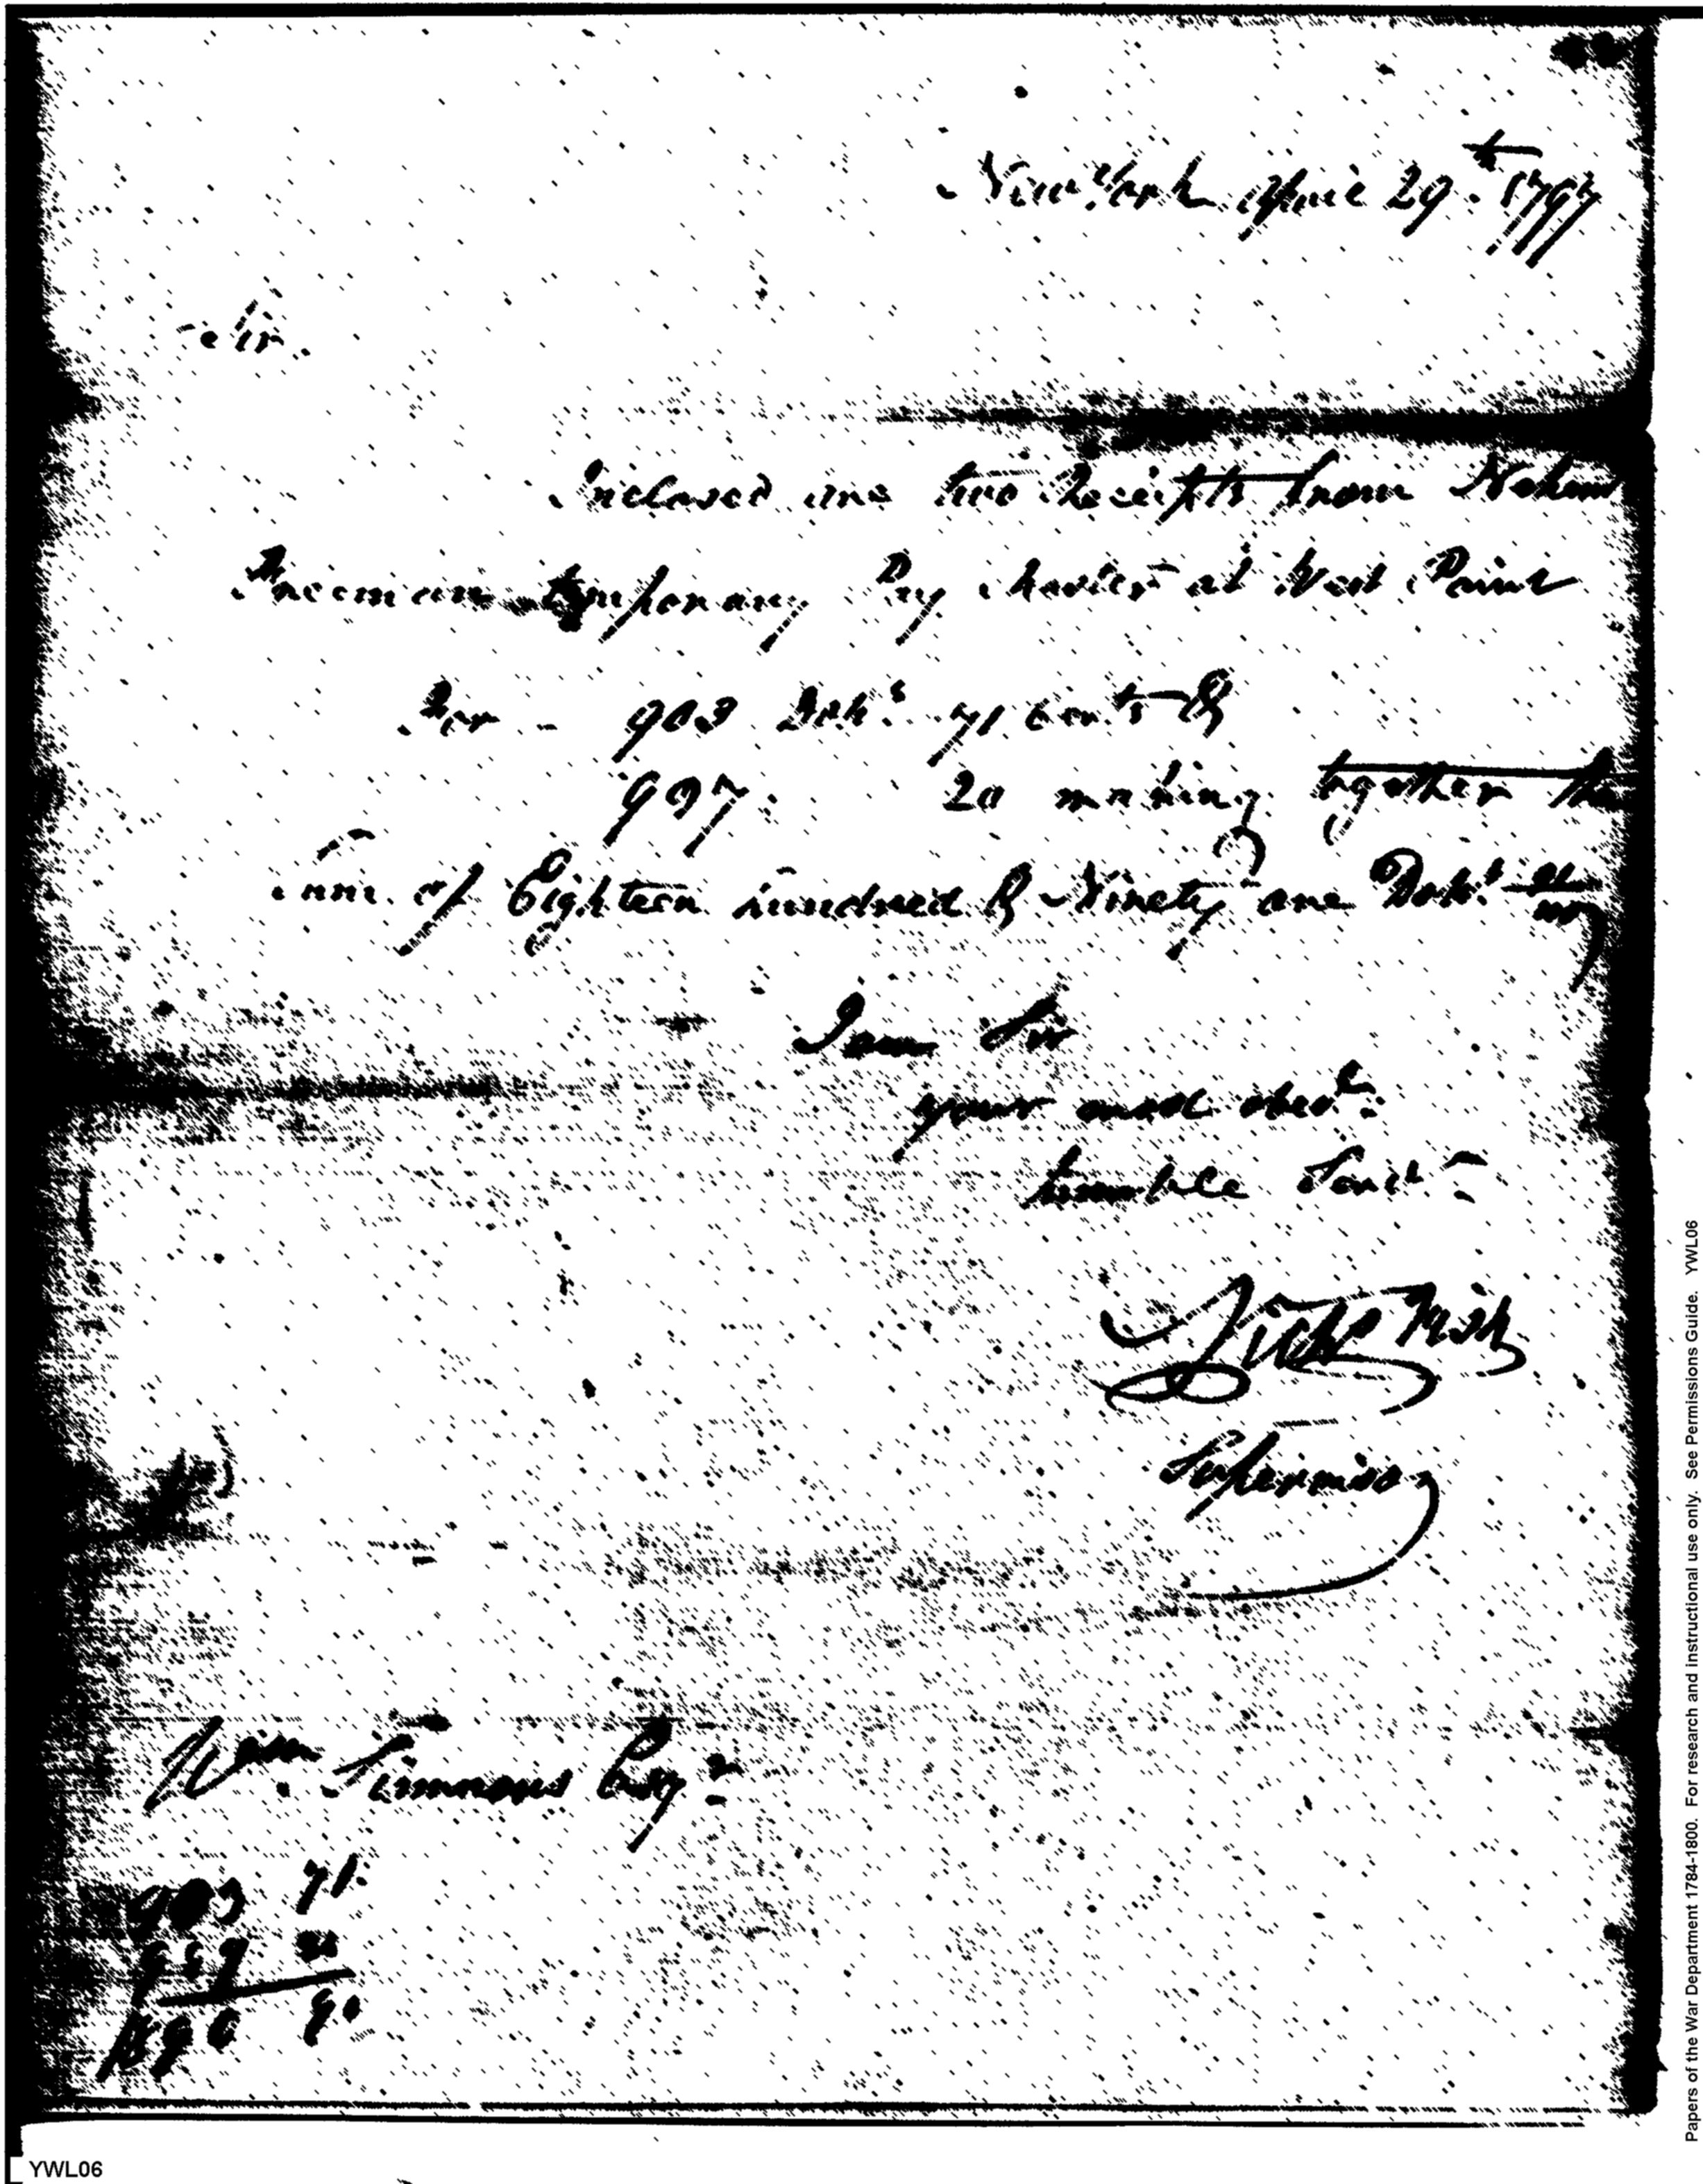 New York April 29th 1797
Sir.
Inclosed are two Receipts from
Freeman temporary Pay Master at West Point
For - 903 Dolls 71 Cents &
987. 20 making together the
Sum of Eighteen hundred & Ninety one Dolls
I am Sir
your most obedt.
humble Servt
Nichs Fish
Supervisor
Wm. Simmons Esqr
903 71
1890 91
YWL06
Papers of the War Department 1784-1800. For research and instructional use only. See Permissions Guide. YWL06